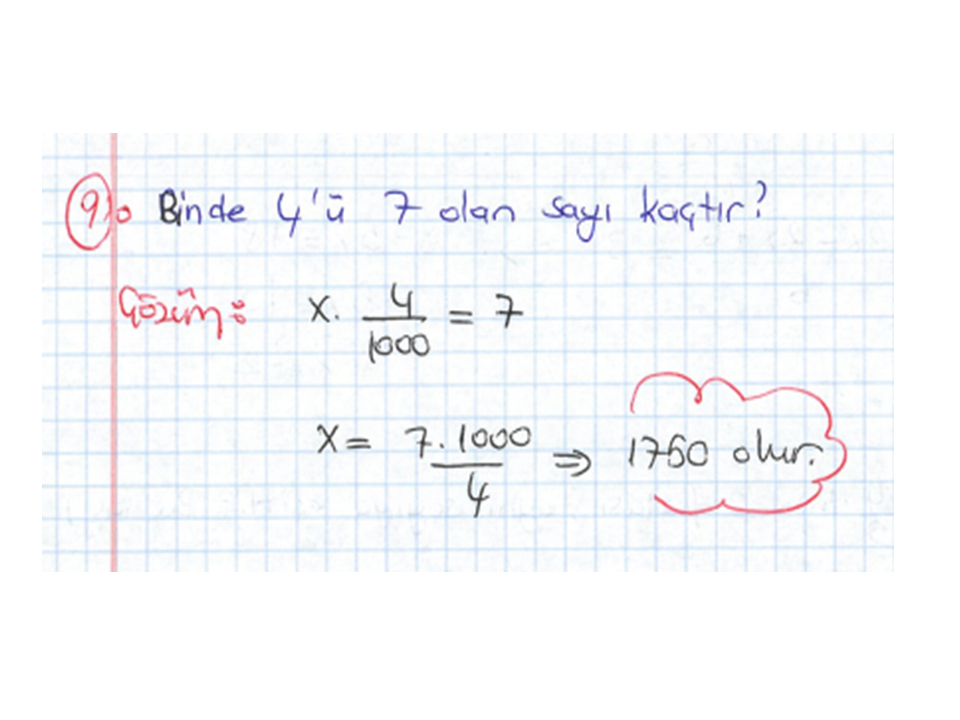 9) Binde 4'ü 7 olan sayı kaçtır?
Çözüm: x. 4/1000 = 7
x = 7.1000/4 ⇒ 1750 olur.